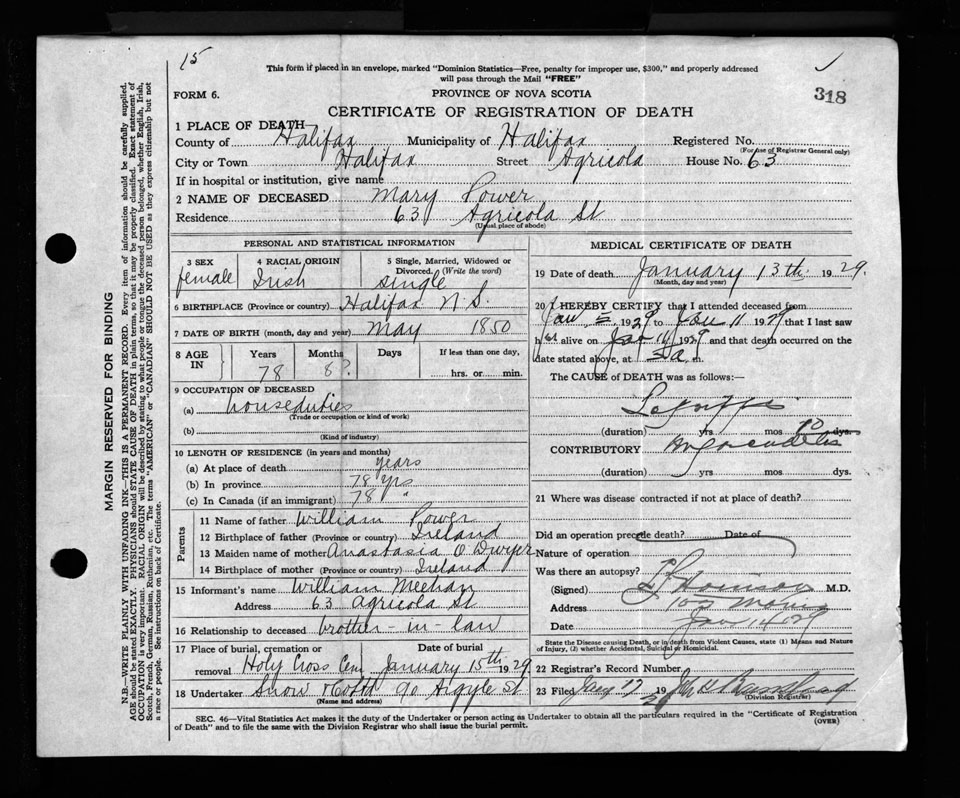 15
This form if placed in an envelope, marked "Dominion Statistics—Free, penalty for improper use, $300," and properly addressed
will pass through the Mail "FREE"
FORM 6.
PROVINCE OF NOVA SCOTIA
318
CERTIFICATE OF REGISTRATION OF DEATH
1 PLACE OF DEATH
County of Halifax Municipality of Halifax Registered No.
(For use of Registrar General only)
City or Town Halifax Street Agricola House No. 63
If in hospital or institution, give name
2 NAME OF DECEASED Mary Power
Residence 63 Agricola St
(Usual place of abode)
PERSONAL AND STATISTICAL INFORMATION
3 SEX 4 RACIAL ORIGIN 5 Single, Married, Widowed or
Divorced. (Write the word)
female Irish single
6 BIRTHPLACE (Province or country) Halifax N.S.
7 DATE OF BIRTH (month, day and year) May 1850
8 AGE IN Years Months Days If less than one day,
78 8? hrs. or min.
9 OCCUPATION OF DECEASED
(a) houseduties
(Trade or occupation or kind of work)
(b)
(Kind of industry)
10 LENGTH OF RESIDENCE (in years and months)
(a) At place of death years
(b) In province 78 yrs
(c) In Canada (if an immigrant) 78 "
Parents
11 Name of father William Power
12 Birthplace of father (Province or country) Ireland
13 Maiden name of mother Anastasia O Dwyer
14 Birthplace of mother (Province or country) Ireland
15 Informant's name William Meehan
Address 63 Agricola St
16 Relationship to deceased brother-in-law
17 Place of burial, cremation or removal Date of burial
Holy Cross Cem January 15th 1929
18 Undertaker Snow & Co Ltd 90 Argyle St
(Name and address)
MEDICAL CERTIFICATE OF DEATH
19 Date of death January 13th 1929.
(Month, day and year)
20 I HEREBY CERTIFY that I attended deceased from
1929 to Jan 11 1929 that I last saw
her alive on 1929 and that death occurred on the
date stated above, at m.
The CAUSE OF DEATH was as follows:—
La Grippe
(duration) yrs mos 10 dys.
CONTRIBUTORY Myocarditis
(duration) yrs mos dys.
21 Where was disease contracted if not at place of death?
Did an operation precede death? Date of
Nature of operation
Was there an autopsy?
(Signed) M.D.
Address
Date Jan 14 29
State the Disease causing Death, or in death from Violent Causes, state (1) Means and Nature
of Injury, (2) whether Accidental, Suicidal or Homicidal.
22 Registrar's Record Number
23 Filed 17 1929
(Division Registrar)
SEC. 46—Vital Statistics Act makes it the duty of the Undertaker or person acting as Undertaker to obtain all the particulars required in the "Certificate of Registration
of Death" and to file the same with the Division Registrar who shall issue the burial permit.
(OVER)
MARGIN RESERVED FOR BINDING
N.B.—WRITE PLAINLY WITH UNFADING INK—THIS IS A PERMANENT RECORD. Every item of information should be carefully supplied.
AGE should be stated EXACTLY. PHYSICIANS should STATE CAUSE OF DEATH in plain terms, so that it may be properly classified. Exact statement of
OCCUPATION is very important. RACIAL ORIGIN will be described by stating to what people or tongue the deceased person belonged, whether English, Irish,
Scotch, French, German, Russian, Ruthenian, etc. The terms "AMERICAN" or "CANADIAN" SHOULD NOT BE USED as they express citizenship but not
a race or people. See instructions on back of Certificate.